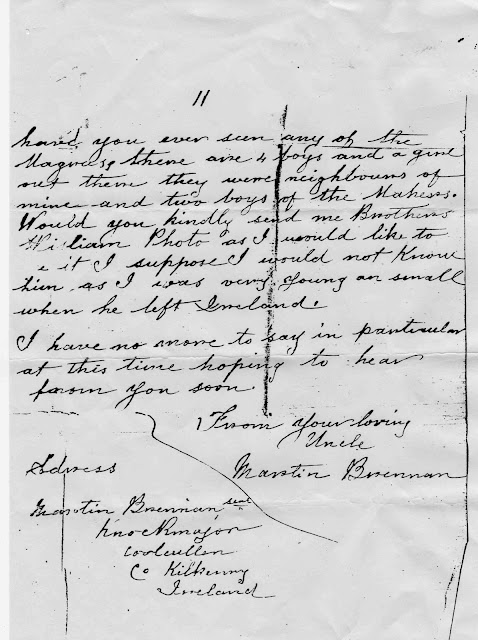 11
have you ever seen any of the
there are 4 boys and a girl
out there they were neighbours of
mine and two boys of the Mahers.
Would you kindly send me Brothers
William Photo as I would like to
e it I suppose I would not Know
him as I was very young an small
when he left Ireland.
I have no more to say in particular
at this time hoping to hear
from you soon.
From your loving
Uncle
Martin Brennan
Adress
Martin Brennan
Knockmajor
Coolcullen
Co Kilkenny
Ireland